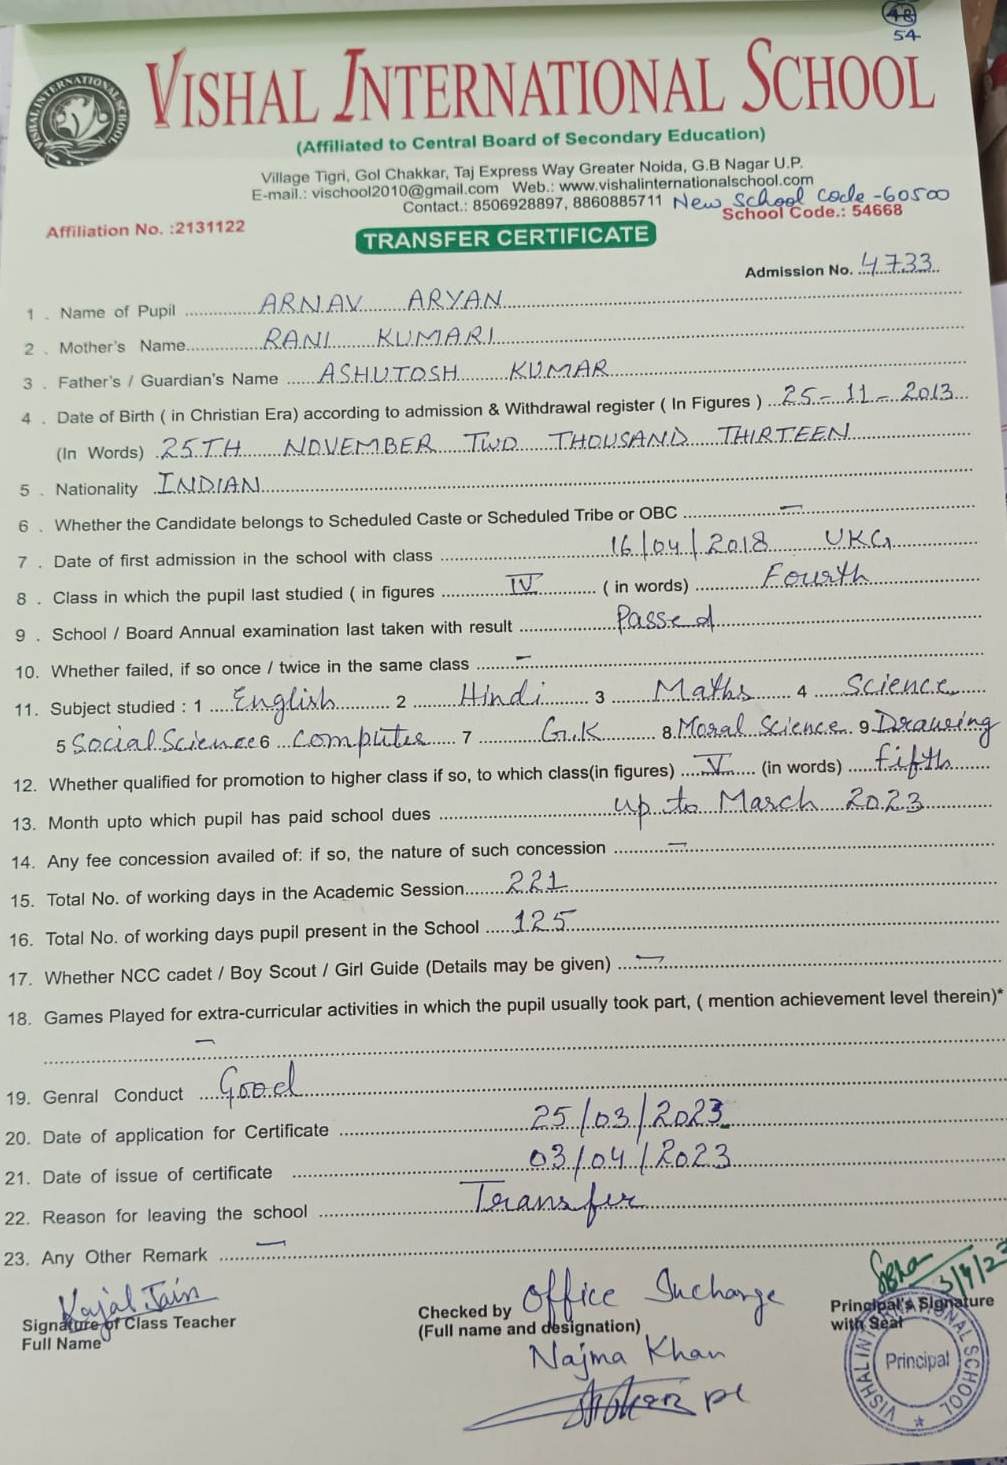 48
54
VISHAL INTERNATIONAL SCHOOL
(Affiliated to Central Board of Secondary Education)
Village Tigri, Gol Chakkar, Taj Express Way Greater Noida, G.B Nagar U.P.
E-mail.: vischool2010@gmail.com Web.: www.vishalinternationalschool.com
Contact.: 8506928897, 8860885711 New School Code-60500
Affiliation No. :2131122 School Code.: 54668
TRANSFER CERTIFICATE
Admission No. 4733
1 . Name of Pupil ARNAV ARYAN
2 . Mother's Name RANI KUMARI
3 . Father's / Guardian's Name ASHUTOSH KUMAR
4 . Date of Birth ( in Christian Era) according to admission & Withdrawal register ( In Figures ) 25-11-2013
(In Words) 25TH NOVEMBER TWO THOUSAND THIRTEEN
5 . Nationality INDIAN
6 . Whether the Candidate belongs to Scheduled Caste or Scheduled Tribe or OBC —
7 . Date of first admission in the school with class 16/04/2018 UKG
8 . Class in which the pupil last studied ( in figures IV ( in words) Fourth
9 . School / Board Annual examination last taken with result Passed
10. Whether failed, if so once / twice in the same class —
11. Subject studied : 1 English 2 Hindi 3 Maths 4 Science
5 Social Science 6 Computer 7 G.K 8 Moral Science 9 Draweing
12. Whether qualified for promotion to higher class if so, to which class(in figures) V (in words) fifth
13. Month upto which pupil has paid school dues up to March 2023
14. Any fee concession availed of: if so, the nature of such concession =
15. Total No. of working days in the Academic Session 221
16. Total No. of working days pupil present in the School 125
17. Whether NCC cadet / Boy Scout / Girl Guide (Details may be given) —
18. Games Played for extra-curricular activities in which the pupil usually took part, ( mention achievement level therein)*
—
19. Genral Conduct Good
20. Date of application for Certificate 25/03/2023
21. Date of issue of certificate 03/04/2023
22. Reason for leaving the school Transfer
23. Any Other Remark —
Kajal Jain
Signature of Class Teacher
Full Name
Checked by Office Incharge
(Full name and designation)
Najma Khan
3/4/23
Principal's Signature
with Seal
VISHAL INTERNATIONAL SCHOOL
Principal